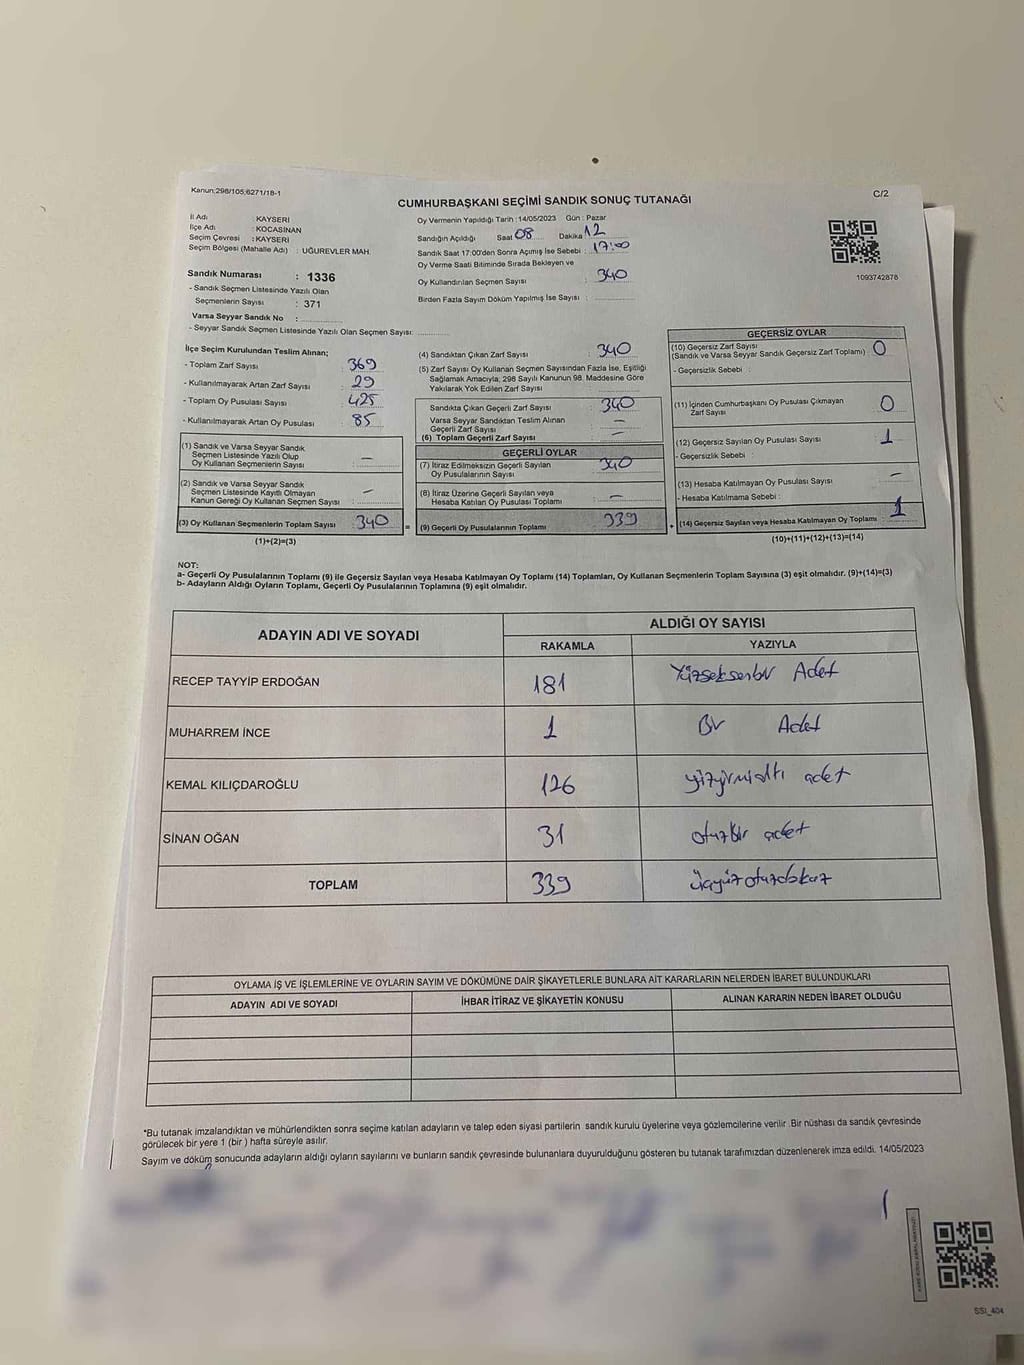 Kanun:298/105;6271/18-1
C/2
CUMHURBAŞKANI SEÇİMİ SANDIK SONUÇ TUTANAĞI
İl Adı : KAYSERİ
İlçe Adı : KOCASİNAN
Seçim Çevresi : KAYSERİ
Seçim Bölgesi (Mahalle Adı) : UĞUREVLER MAH.
Sandık Numarası : 1336
- Sandık Seçmen Listesinde Yazılı Olan
Seçmenlerin Sayısı : 371
Varsa Seyyar Sandık No :
- Seyyar Sandık Seçmen Listesinde Yazılı Olan Seçmen Sayısı:
Oy Vermenin Yapıldığı Tarih : 14/05/2023 Gün : Pazar
Sandığın Açıldığı Saat 08 Dakika 12
Sandık Saat 17:00'den Sonra Açımış İse Sebebi : 17:00
Oy Verme Saati Bitiminde Sırada Bekleyen ve
Oy Kullandırılan Seçmen Sayısı : 340
Birden Fazla Sayım Döküm Yapılmış İse Sayısı :
1093742878
İlçe Seçim Kurulundan Teslim Alınan;
- Toplam Zarf Sayısı : 369
- Kullanılmayarak Artan Zarf Sayısı : 29
- Toplam Oy Pusulası Sayısı : 425
- Kullanılmayarak Artan Oy Pusulası : 85
(1) Sandık ve Varsa Seyyar Sandık
Seçmen Listesinde Yazılı Olup
Oy Kullanan Seçmenlerin Sayısı : —
(2) Sandık ve Varsa Seyyar Sandık
Seçmen Listesinde Kayıtlı Olmayan
Kanun Gereği Oy Kullanan Seçmen Sayısı : —
(3) Oy Kullanan Seçmenlerin Toplam Sayısı : 340 =
(1)+(2)=(3)
(4) Sandıktan Çıkan Zarf Sayısı : 340
(5) Zarf Sayısı Oy Kullanan Seçmen Sayısından Fazla İse, Eşitliği
Sağlamak Amacıyla, 298 Sayılı Kanunun 98. Maddesine Göre
Yakılarak Yok Edilen Zarf Sayısı :
Sandıkta Çıkan Geçerli Zarf Sayısı : 340
Varsa Seyyar Sandıktan Teslim Alınan
Geçerli Zarf Sayısı : —
(6) Toplam Geçerli Zarf Sayısı : —
GEÇERLİ OYLAR
(7) İtiraz Edilmeksizin Geçerli Sayılan
Oy Pusulalarının Sayısı : 340
(8) İtiraz Üzerine Geçerli Sayılan veya
Hesaba Katılan Oy Pusulası Toplamı : —
(9) Geçerli Oy Pusulalarının Toplamı : 339 +
GEÇERSİZ OYLAR
(10) Geçersiz Zarf Sayısı
(Sandık ve Varsa Seyyar Sandık Geçersiz Zarf Toplamı) : 0
- Geçersizlik Sebebi :
(11) İçinden Cumhurbaşkanı Oy Pusulası Çıkmayan
Zarf Sayısı : 0
(12) Geçersiz Sayılan Oy Pusulası Sayısı : 1
- Geçersizlik Sebebi :
(13) Hesaba Katılmayan Oy Pusulası Sayısı : —
- Hesaba Katılmama Sebebi :
(14) Geçersiz Sayılan veya Hesaba Katılmayan Oy Toplamı : 1
(10)+(11)+(12)+(13)=(14)
NOT:
a- Geçerli Oy Pusulalarının Toplamı (9) ile Geçersiz Sayılan veya Hesaba Katılmayan Oy Toplamı (14) Toplamları, Oy Kullanan Seçmenlerin Toplam Sayısına (3) eşit olmalıdır. (9)+(14)=(3)
b- Adayların Aldığı Oyların Toplamı, Geçerli Oy Pusulalarının Toplamına (9) eşit olmalıdır.
ADAYIN ADI VE SOYADI
ALDIĞI OY SAYISI
RAKAMLA YAZIYLA
RECEP TAYYİP ERDOĞAN 181 Yüzseksenbir Adet
MUHARREM İNCE 1 Bir Adet
KEMAL KILIÇDAROĞLU 126 yüzyirmialtı adet
SİNAN OĞAN 31 otuzbir adet
TOPLAM 339 üçyüzotuzdokuz
OYLAMA İŞ VE İŞLEMLERİNE VE OYLARIN SAYIM VE DÖKÜMÜNE DAİR ŞİKAYETLERLE BUNLARA AİT KARARLARIN NELERDEN İBARET BULUNDUKLARI
ADAYIN ADI VE SOYADI İHBAR İTİRAZ VE ŞİKAYETİN KONUSU ALINAN KARARIN NEDEN İBARET OLDUĞU
*Bu tutanak imzalandıktan ve mühürlendikten sonra seçime katılan adayların ve talep eden siyasi partilerin sandık kurulu üyelerine veya gözlemcilerine verilir .Bir nüshası da sandık çevresinde
görülecek bir yere 1 (bir ) hafta süreyle asılır.
Sayım ve döküm sonucunda adayların aldığı oyların sayılarını ve bunların sandık çevresinde bulunanlara duyurulduğunu gösteren bu tutanak tarafımızdan düzenlenerek imza edildi. 14/05/2023
SSI_404